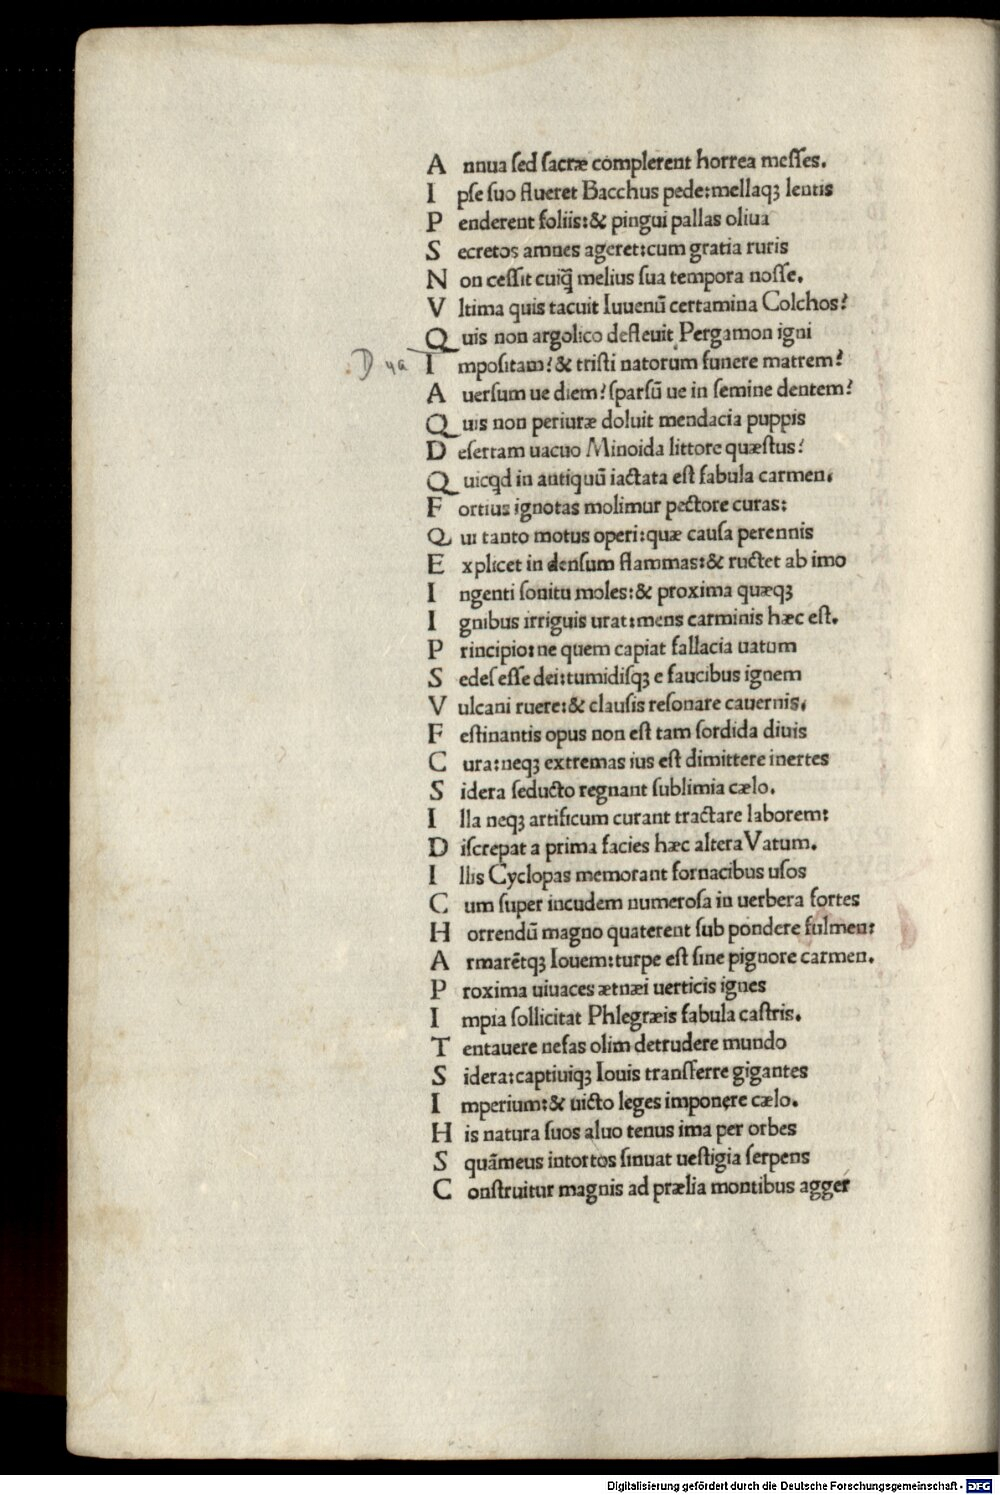 Annua sed sacræ complerent horrea messes.
Ipse suo flueret Bacchus pede:mellaqꝫ lentis
Penderent foliis:& pingui pallas oliua
Secretos amnes ageret:cum gratia ruris
Non cessit cuiq̃ melius sua tempora nosse.
Vltima quis tacuit Iuuenũ certamina Colchos?
Quis non argolico defleuit Pergamon igni
Impositam?& tristi natorum funere matrem?
Auersum ue diem?sparsũ ue in semine dentem?
Quis non periuræ doluit mendacia puppis
Desertam uacuo Minoida littore quæstus?
Quicqd in antiquũ iactata est fabula carmen.
Fortius ignotas molimur pectore curas:
Qui tanto motus operi:quæ causa perennis
Explicet in densum flammas:& ructet ab imo
Ingenti sonitu moles:& proxima quæqꝫ
Ignibus irriguis urat:mens carminis hæc est.
Principio:ne quem capiat fallacia uatum
Sedes esse dei:tumidisqꝫ e faucibus ignem
Vulcani ruere:& clausis resonare cauernis.
Festinantis opus non est tam sordida diuis
Cura:neqꝫ extremas ius est dimittere inertes
Sidera seducto regnant sublimia cælo.
Illa neqꝫ artificum curant tractare laborem:
Discrepat a prima facies hæc altera Vatum.
Illis Cyclopas memorant fornacibus usos
Cum super incudem numerosa in uerbera fortes
Horrendũ magno quaterent sub pondere fulmen:
Armarẽtqꝫ Iouem:turpe est sine pignore carmen.
Proxima uiuaces ætnæi uerticis ignes
Impia sollicitat Phlegræis fabula castris.
Tentauere nefas olim detrudere mundo
Sidera:captiuiqꝫ Iouis transferre gigantes
Imperium:& uicto leges imponere cælo.
His natura suos aluo tenus ima per orbes
Squãmeus intortos sinuat uestigia serpens
Construitur magnis ad prælia montibus agger
Digitalisierung gefördert durch die Deutsche Forschungsgemeinschaft - DFG